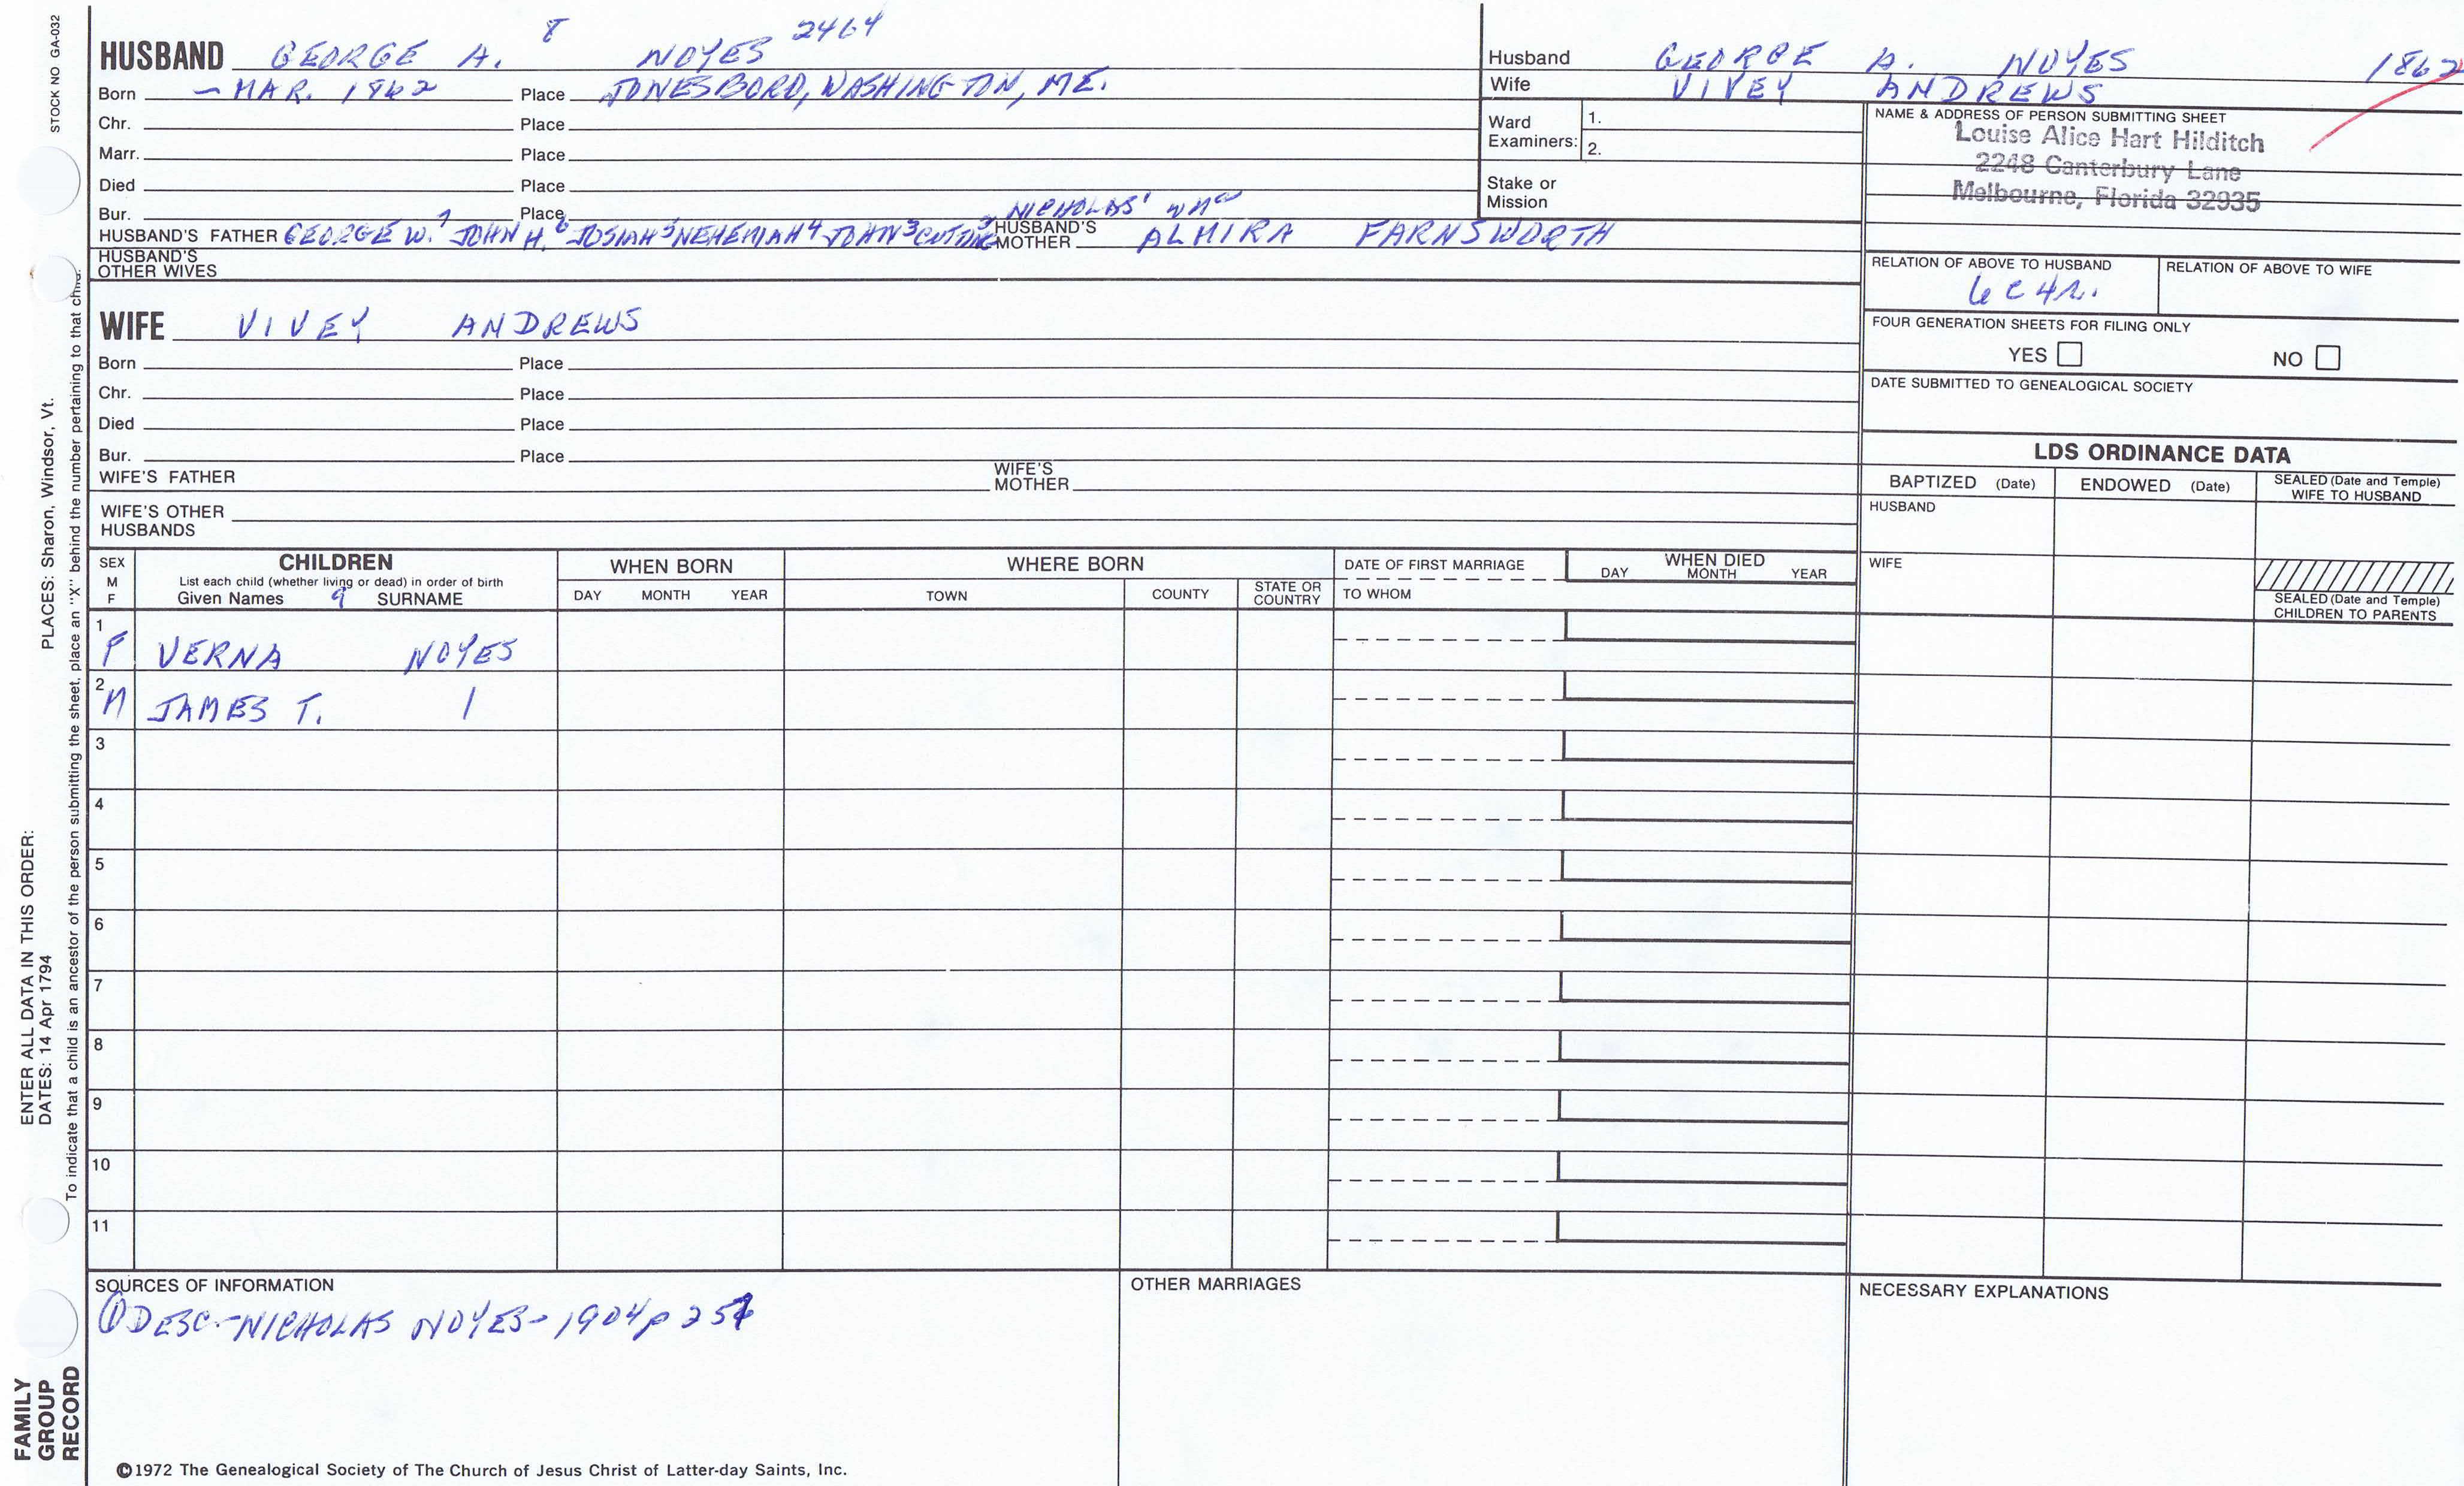 STOCK NO GA-032
HUSBAND GEORGE A. 8 NOYES 2464
Born - MAR. 1862 Place JONESBORO, WASHINGTON, ME.
Chr. Place
Marr. Place
Died Place
Bur. Place
NICHOLAS1 WMA
HUSBAND'S FATHER GEORGE W.7 JOHN H.6 JOSIAH5 NEHEMIAH4 JOHN3 CUTTING2 HUSBAND'S MOTHER ALMIRA FARNSWORTH
HUSBAND'S OTHER WIVES
Husband GEORGE A. NOYES 1862
Wife VIVEY ANDREWS
Ward Examiners: 1.
2.
Stake or Mission
NAME & ADDRESS OF PERSON SUBMITTING SHEET
Louise Alice Hart Hilditch
2248 Canterbury Lane
Melbourne, Florida 32935
RELATION OF ABOVE TO HUSBAND RELATION OF ABOVE TO WIFE
6C4R.
FOUR GENERATION SHEETS FOR FILING ONLY
YES NO
DATE SUBMITTED TO GENEALOGICAL SOCIETY
WIFE VIVEY ANDREWS
Born Place
Chr. Place
Died Place
Bur. Place
WIFE'S FATHER WIFE'S MOTHER
WIFE'S OTHER HUSBANDS
LDS ORDINANCE DATA
BAPTIZED (Date) ENDOWED (Date) SEALED (Date and Temple) WIFE TO HUSBAND
HUSBAND
WIFE
SEALED (Date and Temple) CHILDREN TO PARENTS
SEX M F
CHILDREN
List each child (whether living or dead) in order of birth
Given Names 9 SURNAME
WHEN BORN
DAY MONTH YEAR
WHERE BORN
TOWN COUNTY STATE OR COUNTRY
DATE OF FIRST MARRIAGE
TO WHOM
WHEN DIED
DAY MONTH YEAR
1 F VERNA NOYES
2 M JAMES T. |
3
4
5
6
7
8
9
10
11
SOURCES OF INFORMATION
① DESC.-NICHOLAS NOYES-1904 p 257
OTHER MARRIAGES
NECESSARY EXPLANATIONS
©1972 The Genealogical Society of The Church of Jesus Christ of Latter-day Saints, Inc.
FAMILY
GROUP
RECORD
ENTER ALL DATA IN THIS ORDER:
DATES: 14 Apr 1794 PLACES: Sharon, Windsor, Vt.
To indicate that a child is an ancestor of the person submitting the sheet, place an "X" behind the number pertaining to that child.